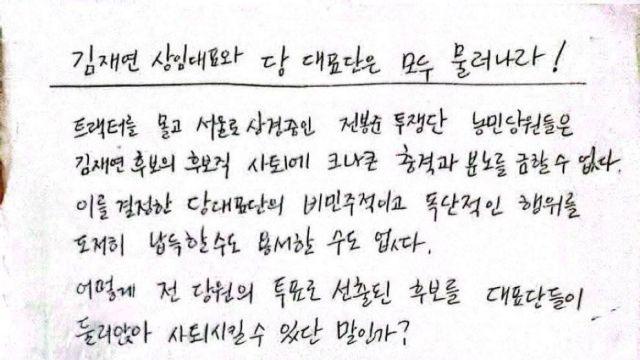 김재연 상임대표와 당 대표단은 모두 물러나라!
트랙터를 몰고 서울로 상경중인 전봉준 투쟁단 농민당원들은
김재연 후보의 후보직 사퇴에 크나큰 충격과 분노를 금할 수 없다.
이를 결정한 당대표단의 비민주적이고 독단적인 행위를
도저히 납득할수도 용서할 수도 없다.
어떻게 전 당원의 투표로 선출된 후보를 대표단들이
둘러앉아 사퇴시킬 수 있단 말인가?